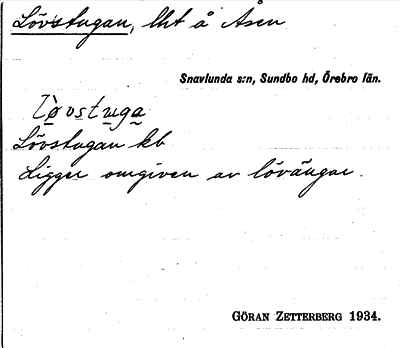 Lövstugan, lht å Åsen
Snavlunda s:n, Sundbo hd, Örebro län.
Lövstugan kb
Ligger omgiven av lövängar.
GÖRAN ZETTERBERG 1934.